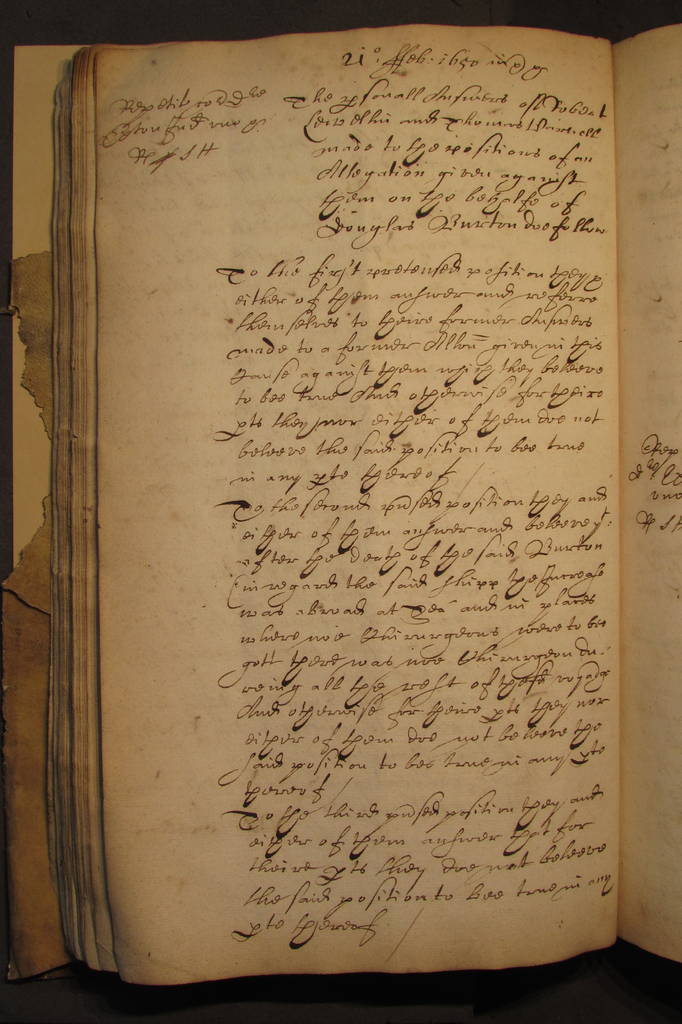 21° ffeb: 1650
Repetit cord dre
The psonall Answers off Robert
Lewellin and Thomas
made to the positions of an
Allegation given against
them on the behalfe of
Douglas Burton doe follow
To the first pretensed position they
either of them answer and referre
themselves to theire former Answers
made to a former Allon given in this
Cause against them which they beleeve
to bee true And otherwise for theire
pts they nor either of them doe not
beleeve the said position to bee true
in any pte thereof /
To the second pnsed position they and
either of them answer and beleeve yt:
after the death of the said Burton
(in regard the said shipp the Increase
was abroad at Sea and in places
where noe Chirurgeons were to bee
gott there was noe Chirurgeon du:
reing all the rest of the voyadge
And otherwise for theire pts they nor
either of them doe not beleeve the
said position to bee true in any pte
thereof /
To the third pnsed position they and
either of them answer that for
theire pts they doe not beleeve
the said position to bee true in any
pte thereof /
Rep